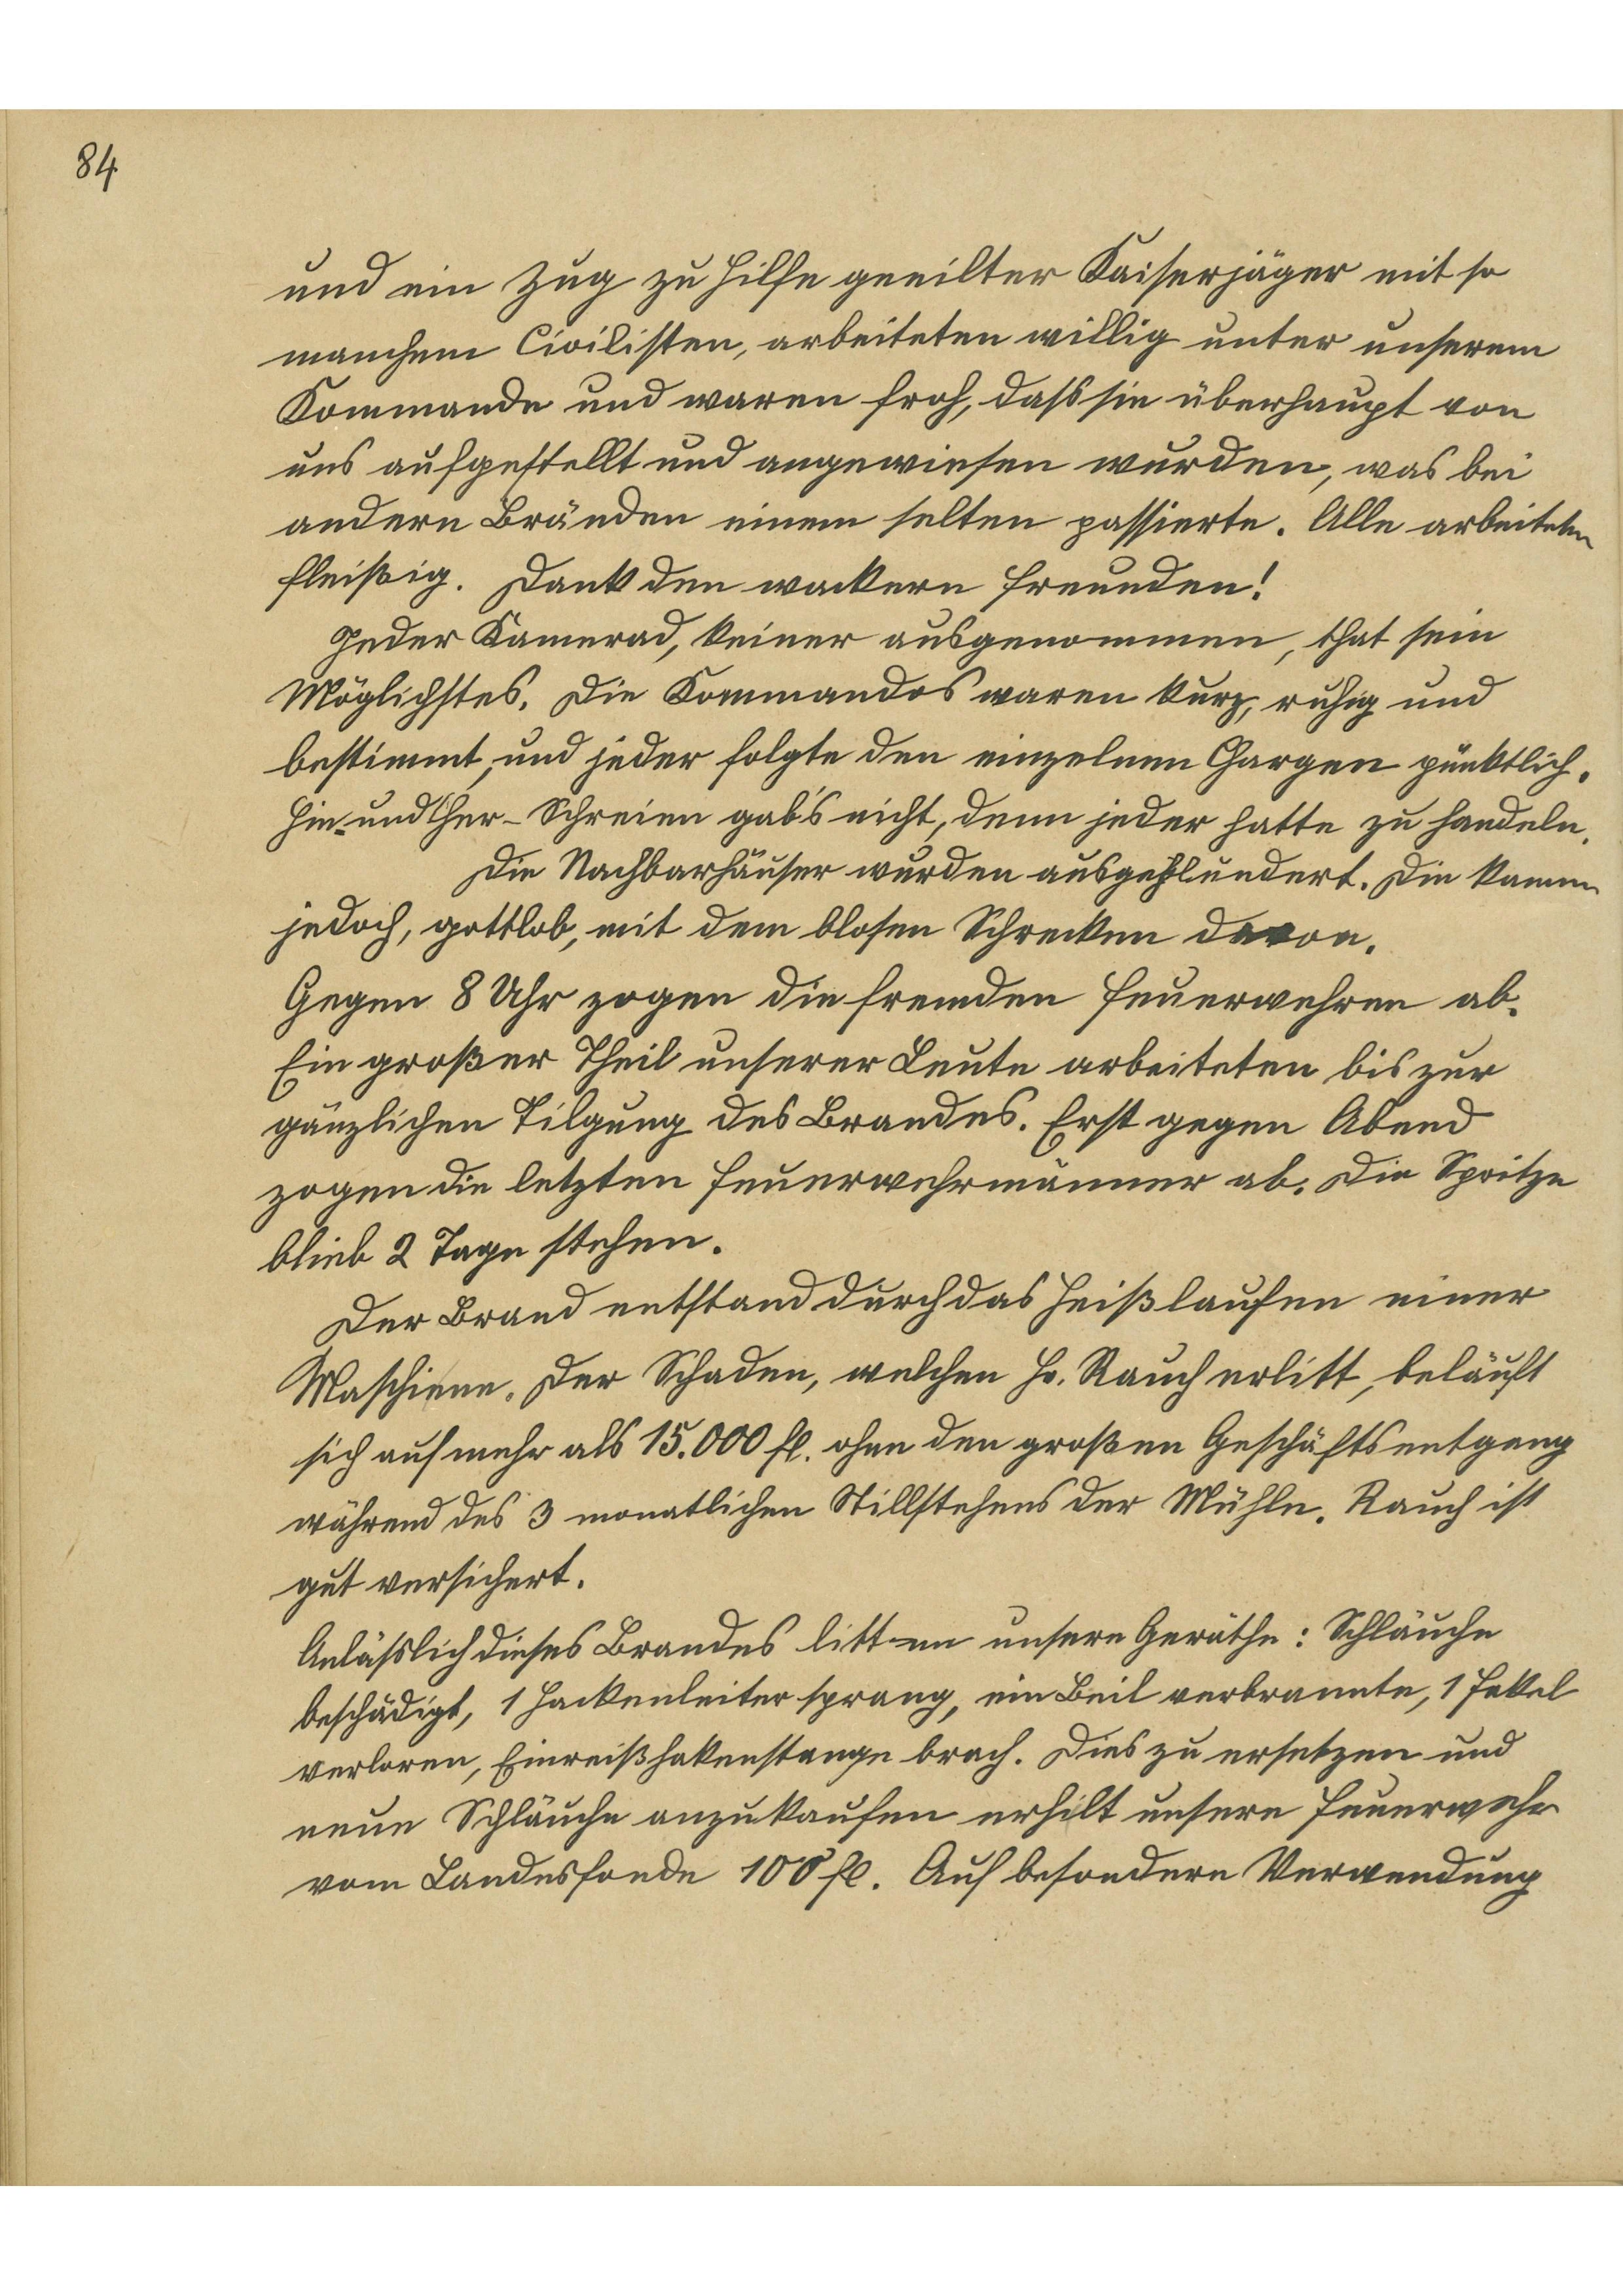 84
und ein Zug zu Hilfe geeilter Kaiserjäger mit so
manchem Civilisten, arbeiteten willig unter unserem
Kommande und waren froh, dass sie überhaupt von
uns aufgestellt und angewiesen wurden, was bei
andern Bränden einem selten passierte. Alle arbeiteten
fleißig. Dank den wackern Freunden!
Jeder Kamerad, keiner ausgenommen, that sein
Möglichstes. Die Kommandos waren kurz, ruhig und
bestimmt, und jeder folgte den einzelnen Chargen pünktlich.
Hin- und Her-Schreien gab's nicht, denn jeder hatte zu handeln.
Die Nachbarhäuser wurden ausgeplundert. Die kamen
jedoch, gottlob, mit dem blosen Schrecken davon.
Gegen 8 Uhr zogen die fremden Feuerwehren ab.
Ein großer Theil unserer Leute arbeiteten bis zur
gänzlichen Tilgung des Brandes. Erst gegen Abend
zogen die letzten Feuerwehrmänner ab. Die Spritze
blieb 2 Tage stehen.
Der Brand entstand durch das Heißlaufen einer
Maschiene. Der Schaden, welchen Hr. Rauch erlitt, beläuft
sich auf mehr als 15.000 fl. ohne den großen Geschäftsentgang
während des 3 monatlichen Stillstehens der Mühle. Rauch ist
gut versichert.
Anlässlich dieses Brandes litten unsere Geräthe: Schläuche
beschädigt, 1 Hackenleiter sprang, ein Beil verbrannte, 1 Fakel
verloren, Einreißhakenstange brach. Dies zu ersetzen und
neue Schläuche anzukaufen erhilt unsere Feuerwehr
vom Landesfonde 100 fl. Auf besondere Verwendung